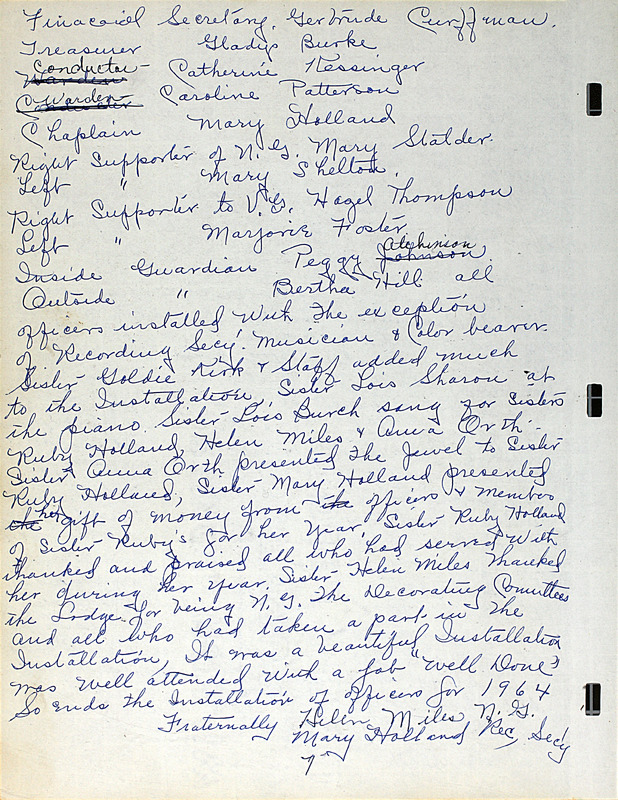 Finacail Secretary. Gertrude Curffman.
Treasurer Gladys Burke
Conductor Warden Catherine Kessinger
Warden Conductor Caroline Patterson
Chaplain Mary Holland
Right Supporter of N.G. Mary Stalder.
Left " Mary Shelton.
Right Supporter to V.G. Hazel Thompson
Left " Marjorie Foster
Inside Guardian Peggy Johnson Atchinson
Outside " Bertha Hill all
officers installed With The exception
of Recording Secy. Musician & Color bearer.
Sister Goldie Kirk & Staff added much
to the Installation Sister Lois Sharon at
the piano. Sister Lois Burch sang for Sisters
Ruby Holland, Helen Miles & Anna Orth.
Sister Anna Orth presented The Jewel to Sister
Ruby Holland, Sister Mary Holland presented
the her gift of money from the officers & Members
of Sister Ruby's for her Year, Sister Ruby Holland
thanked and praised all who had served With
her during her Year, Sister Helen Miles Thanked
the Lodge for being N.G. The Decorating Committees
and all who had taken a part in The
Installation, It was a beautiful Installation
was well attended With a Job "Well Done"
So ends the Installation of officers for 1964
Fraternally Helen Miles N.G.
Mary Holland Rec, Secy